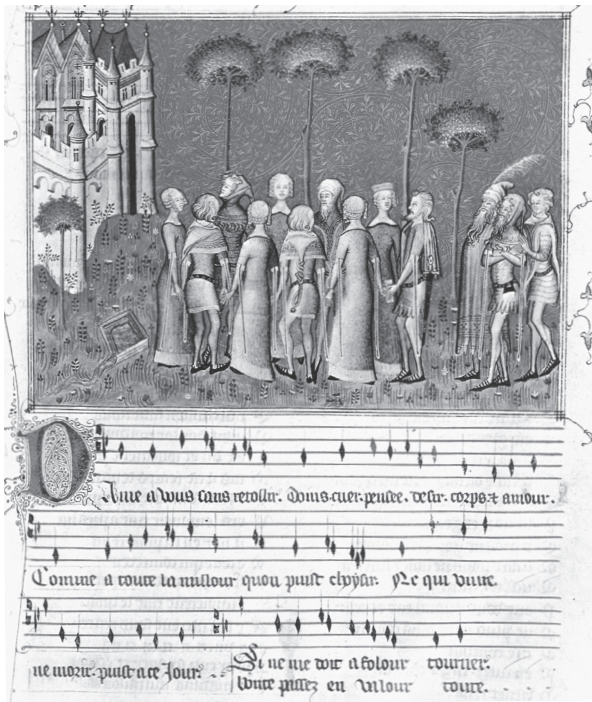 Dame a vous sans retollir. Doins cuer. pensee. desir. corps. et amour.
Comme a toute la millour quon puist choysir. Ne qui vivre.
ne morir. puist a ce Jour.
Si ne me doit a folour tourner.
bonte passez en valour toute.